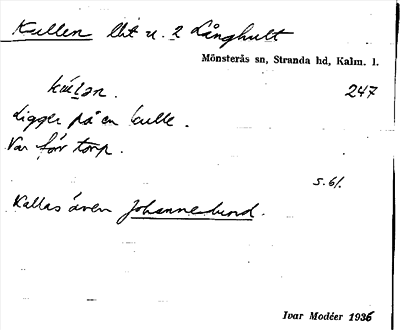 Kullen lht u. 2 Långhult
Mönsterås sn, Stranda hd, Kalm. l.
247
Ligger på en kulle.
Var förr torp.
s. 61.
Kallas även Johannelund.
Ivar Modéer 1936